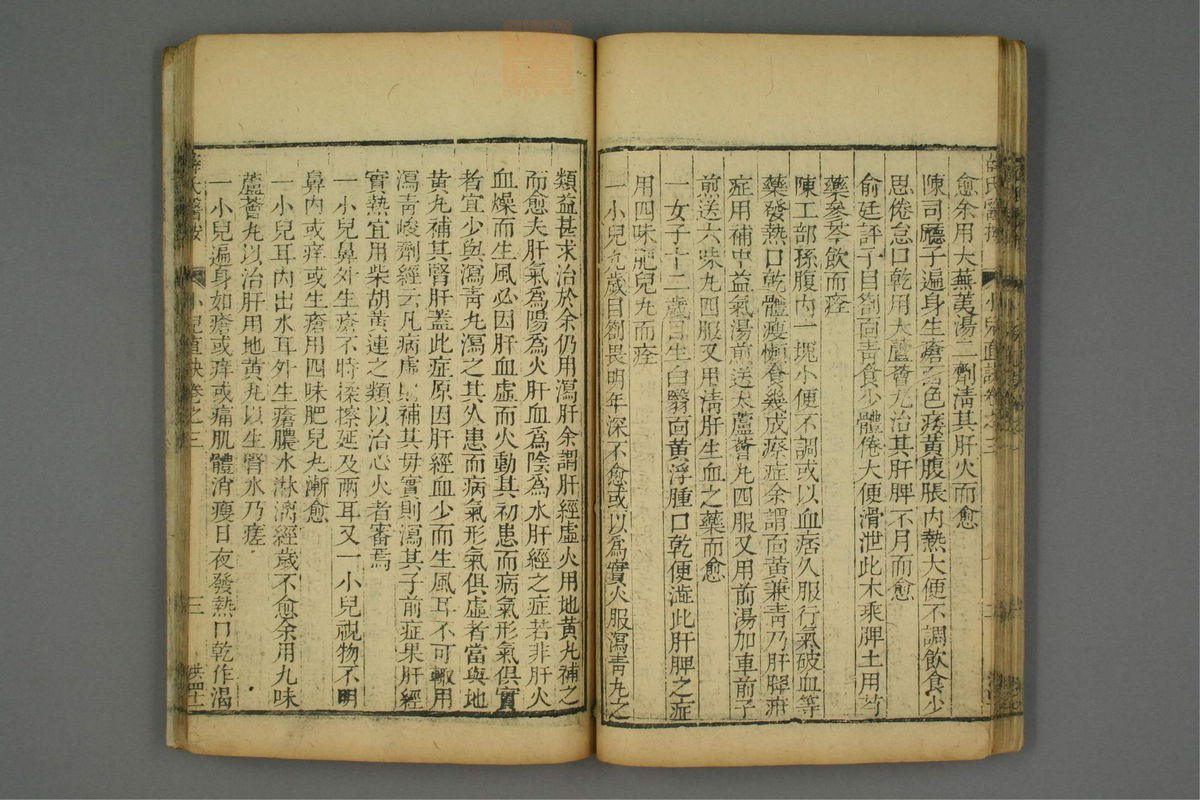 愈余用大蕪荑湯二劑淸其肝火而愈
陳司廳子遍身生瘡面色痿黃腹脹內熱大便不調飲食少
思倦怠口乾用大蘆薈丸治其肝脾不月而愈
俞廷評子目劄面靑食少體倦大便滑泄此木乘脾土用芍
藥參苓飲而痊
陳工部孫腹內一塊小便不調或以血痞久服行氣破血等
藥發熱口乾體瘦懶食幾成瘵症余謂面黃兼靑乃肝脾疳
症用補中益氣湯煎送大蘆薈丸四服又用前湯加車前子
煎送六味丸四服又用淸肝生血之藥而愈
一女子十二歲目生白翳面黃浮腫口乾便澁此肝脾之症
用四味肥兒丸而痊
一小兒九歲目劄畏明年深不愈或以爲實火服瀉靑丸之
類益甚求治於余仍用瀉肝余謂肝經虛火用地黃丸補之
而愈夫肝氣爲陽爲火肝血爲陰爲水肝經之症若非肝火
血燥而生風必因肝血虛而火動其初患而病氣形氣俱實
者宜少與瀉靑丸瀉之其久患而病氣形氣俱虛者當與地
黃丸補其腎肝蓋此症原因肝經血少而生風耳不可輙用
瀉靑峻劑經云凡病虛則補其母實則瀉其子前症果肝經
實熱宜用柴胡黃連之類以治心火者審焉
一小兒鼻外生瘡不時揉擦延及兩耳又一小兒視物不明
鼻內或痒或生瘡用四味肥兒丸漸愈
一小兒耳內出水耳外生瘡膿水淋漓經歲不愈余用九味
蘆薈丸以治肝用地黃丸以生腎水乃瘥
一小兒遍身如瘡或痒或痛肌體消瘦日夜發熱口乾作渴
薛氏醫按 小兒直訣卷之三 三